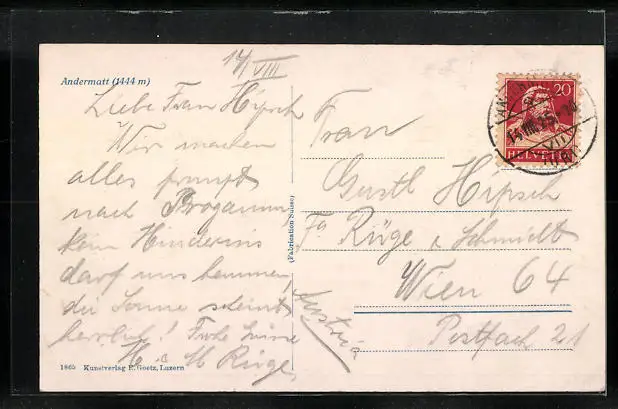 Andermatt (1444 m)
14/VIII
Liebe Frau Hipsch
Wir machen
alles prompt
nach Programm
kein Hindernis
darf uns hemmen,
die Sonne scheint
herrlich! Frohe Grüsse
H. u. M Rüge
1865 Kunstverlag E. Goetz, Luzern
(Fabrication Suisse)
20
HELVETIA
14.VIII.25
Frau
Gustl Hipsch
Fa Rüge & Schmidt
Wien 64
Postfach 21
Austria